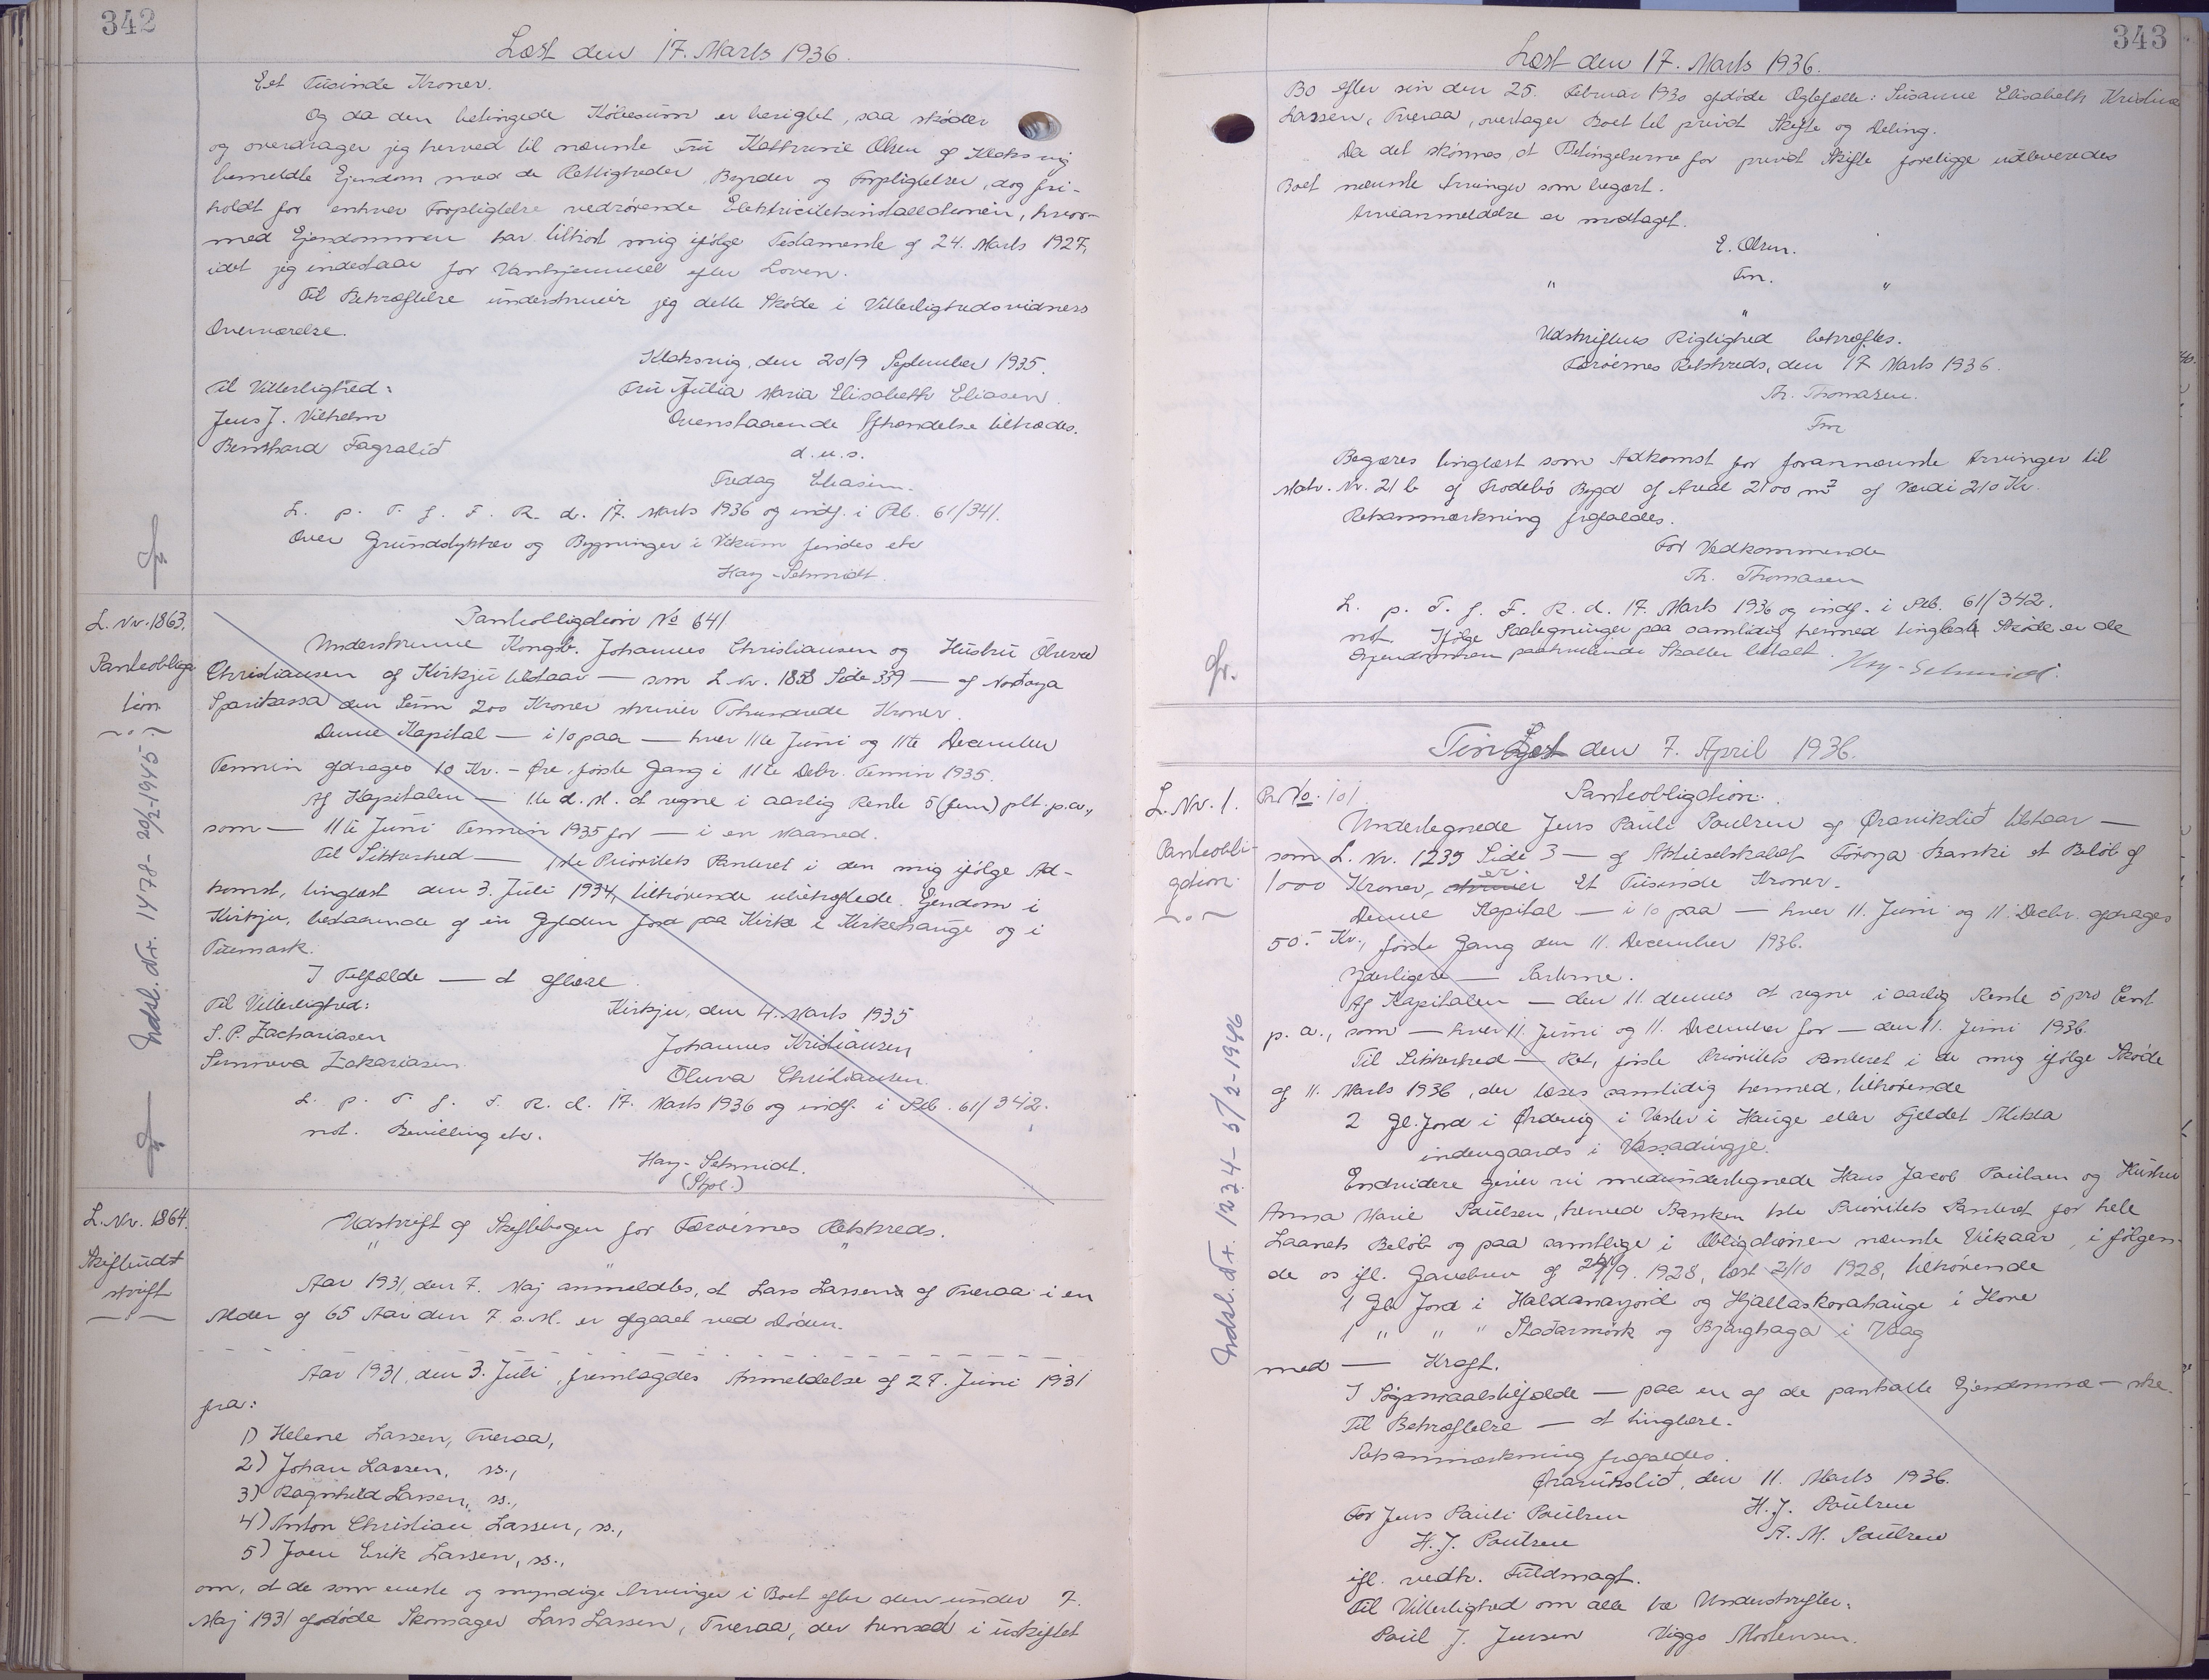 342
Læst den 17. Marts 1936.
Eet Tusinde Kroner.
Og da den betingede Købesum er berigtet, saa skøder
og overdrager jeg herved til nævnte Fru Kathrine Olsen af Klaksvig
bemeldte Ejendom med de Rettigheder, Byrder og Forpligtelser, dog fri-
holdt for enhver Forpligtelse vedrørende Elektricitetsinstallationen, hvor-
med Ejendommen har tilhørt mig ifølge Testamente af 24. Marts 1927,
idet jeg indestaar for Vanhjemmel efter Loven.
Til Bekræftelse underskriver jeg dette Skøde i Vitterlighedsvidners
Overværelse.
Klaksvig, den 20/9 September 1935.
Til Vitterlighed:
Fru Julia Maria Elisabeth Eliasen.
Jens J. Vilhelm
Ovenstaaende Afhændelse tiltrædes.
Bernhard Fagralid
d.u.s.
Fredag Eliasen.
L. p. T. f. F. R. d. 17. Marts 1936 og indf. i Ptb. 61/341.
Over Grundstykker og Bygninger i Vikum findes etc
Hay-Schmidt.
L. Nr. 1863.
Panteobliga
tion
Indsl. Nr. 1478 - 20/2-1945
Panteobligation No 641
Underskrevne Kongsb. Johannes Christiansen og Hustru Oluva
Christiansen af Kirkju tilstaar — som L. Nr. 1858 Side 339 — af Nordoya
Sparikassa den Sum 200 Kroner skriver Tohundrede Kroner.
Denne Kapital — i 10 paa — hver 11te Juni og 11te December
Termin afdrages 10 Kr. - Øre, første Gang i 11te Decbr. Termin 1935.
Af Kapitalen — 11te d. M. at regne i aarlig Rente 5 (fem) pCt. p.a.,
som — 11te Juni Termin 1935 for — i en Maaned.
Til Sikkerhed — 1ste Prioritets Panteret i den mig ifølge Ad-
komst, tinglæst den 3. Juli 1934, tilhørende ubehæftede Ejendom i
Kirkju, bestaaende af en Gylden Jord paa Kirke i Kirkehauge og i
Tuemark.
I Tilfælde — at aflæse
Til Vitterlighed:
Kirkju, den 4. Marts 1935
S. P. Zachariasen
Johannes Kristiansen
Sunneva Zakariasen.
Oluva Christiansen.
L. p. T. f. F. R. d. 17. Marts 1936 og indf. i Ptb. 61/342.
not. Bevilling etc.
Hay-Schmidt.
(Stpl.)
L. Nr. 1864.
Skifteudt
skrift
Udskrift af Skiftebogen for Færøernes Retskreds.
" " "
Aar 1931, den 7. Maj anmeldtes, at Lars Lassen af Tveraa i en
Alder af 65 Aar den 7. s.M. er afgaaet ved Døden.
Aar 1931, den 3. Juli, fremlagdes Anmeldelse af 27. Juni 1931
fra:
1) Helene Lassen, Tveraa,
2) Johan Lassen, ss.,
3) Ragnhild Lassen, ss.,
4) Anton Christian Lassen, ss.,
5) Joen Erik Lassen, ss.,
om, at de som eneste og myndige Arvinger i Boet efter den under 7.
Maj 1931 afdøde Skomager Lars Lassen, Tveraa, der hensad i uskiftet
343
Læst den 17. Marts 1936.
Bo efter sin den 25. Februar 1930 afdøde Ægtefælle: Susanne Elisabeth Kristine
Lassen, Tveraa, overtager Boet til privat Skifte og Deling.
Da det skønnes, at Betingelserne for privat Skifte foreligge udleveredes
Boet nævnte Arvinger som begært.
Arveanmeldelse er modtaget.
E. Olsen.
Fm.
" " "
Udskriftens Rigtighed bekræftes.
Færøernes Retskreds, den 17. Marts 1936.
Th. Thomasen.
Fm
Begæres tinglæst som Adkomst for forannævnte Arvinger til
Matr. Nr. 21 b af Frodebø Bygd af Areal 2100 m² af Værdi 210 Kr.
Retsanmærkning frafaldes.
For Vedkommende
Th. Thomasen
L. p. T. f. F. R. d. 17. Marts 1936 og indf. i Ptb. 61/342.
not. Ifølge Paategninger paa samtidig hermed tinglæst Skøde er de
Ejendommen paahvilende Skatter betalt.
Hay-Schmidt.
Tinglæst den 7. April 1936.
L. Nr. 1.
Panteobli-
gation.
Indsl. Nr. 1234 - 5/2-1946
Pr. No. 101.
Panteobligation.
Undertegnede Jens Pauli Poulsen af Øravikslid tilstaar —
som L. Nr. 1239 Side 3 — af Aktieselskabet Føroya Banki et Beløb af
1000 Kroner, skriver er Et Tusinde Kroner.
Denne Kapital — i 10 paa — hver 11. Juni og 11. Decbr. afdrages
50.- Kr., første Gang den 11. December 1936.
Yderligere — Parterne.
Af Kapitalen — den 11. dennes at regne i aarlig Rente 5 pro Cent
p. a., som — hver 11. Juni og 11. December for — den 11. Juni 1936.
Til Sikkerhed — Ret, første Prioritets Panteret i de mig ifølge Skøde
af 11. Marts 1936, der læses samtidig hermed, tilhørende
2 Gl. Jord i Ørdevig i Vester i Hauge eller Fjeldet Mikla
indengaards i Vassadingje.
Endvidere giver vi medundertegnede Hans Jacob Poulsen og Hustru
Anna Marie Poulsen, herved Banken 1ste Prioritets Panteret for hele
Laanets Beløb og paa samtlige i Obligationen nævnte Vilkaar, i følgen-
de os ifl. Gavebrev af 24/9. 1928, læst 2/10 1928, tilhørende
1 Gl. Jord i Haldanarjord og Hjallaskorahauge i Hove
1 " " " Stadarmørk og Bjarghaga i Vaag
med — Kraft.
I Søgsmaalstilfælde — paa en af de pantsatte Ejendomme — ske.
Til Bekræftelse — at tinglæse.
Retsanmærkning frafaldes.
Øravikslid, den 11. Marts 1936.
For Jens Pauli Poulsen
H. J. Poulsen
H. J. Poulsen
A. M. Poulsen
ifl. vedh. Fuldmagt.
Til Vitterlighed om alle tre Underskrifter:
Poul J. Jensen Viggo Mortensen.